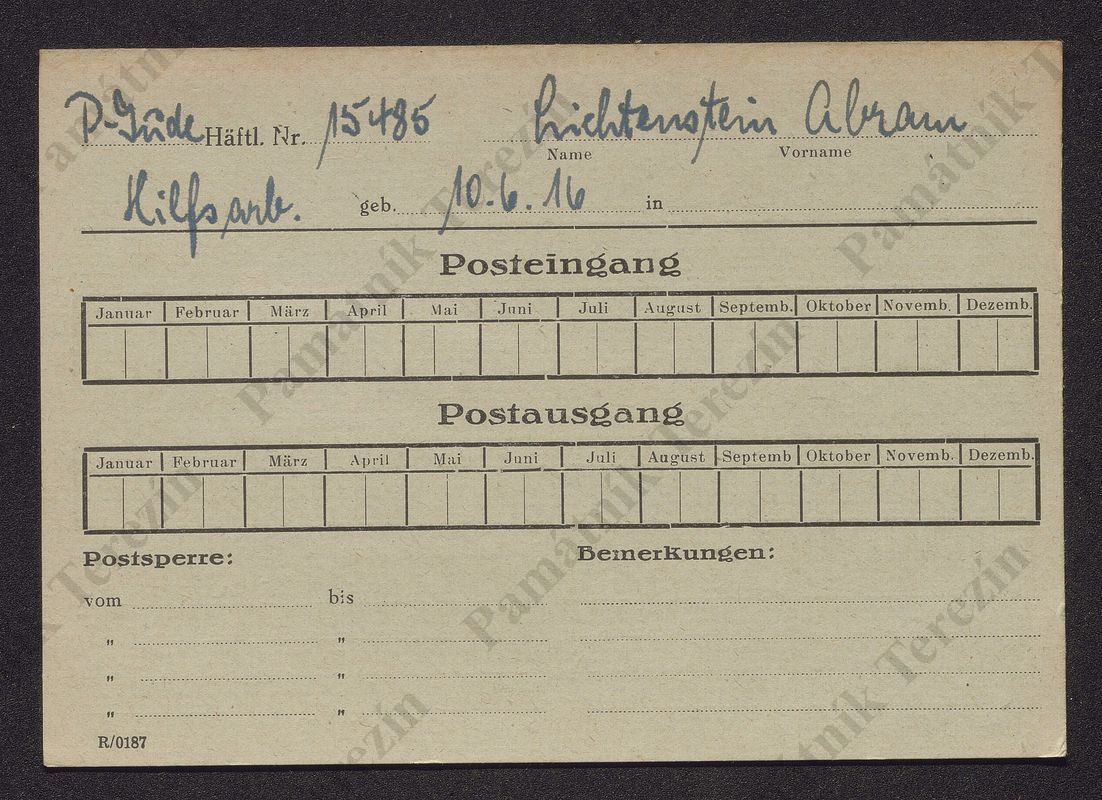 P-Jude Häftl. Nr. 15485 Lichtenstein Abram
Name Vorname
Hilfsarb. geb. 10.6.16 in
Posteingang
Januar Februar März April Mai Juni Juli August Septemb. Oktober Novemb. Dezemb.
Postausgang
Januar Februar März April Mai Juni Juli August Septemb Oktober Novemb. Dezemb.
Postsperre: Bemerkungen:
vom bis
" "
" "
" "
R/0187
Památník Terezín